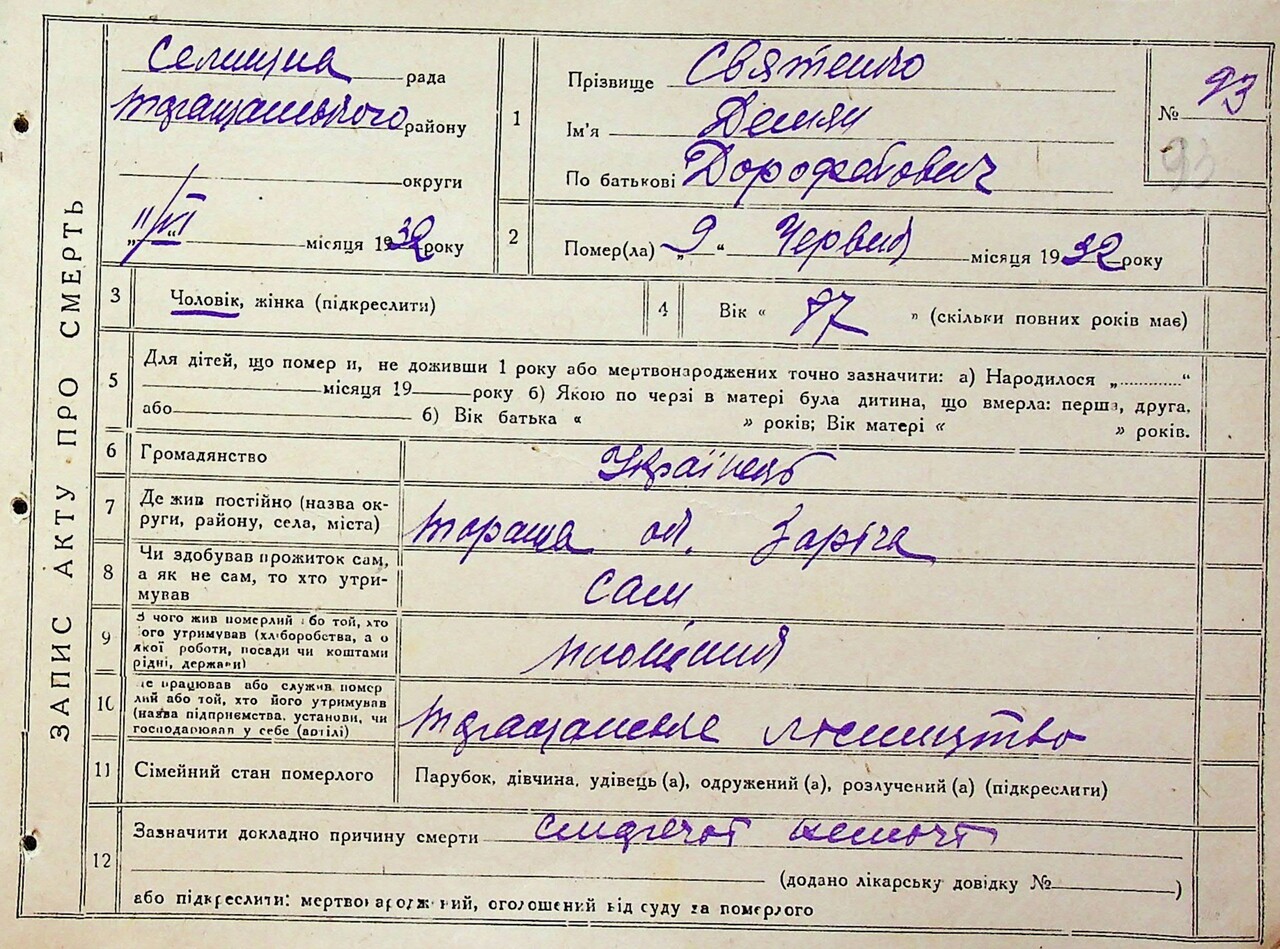 ЗАПИС АКТУ ПРО СМЕРТЬ
Селищна рада
Таращанського району
округи
„11/VI місяця 1932 року
1
Прізвище Святенко
Ім'я Демян
По батькові Дорофейович
№ 93
93
2
Помер(ла) „9“ Червня місяця 1932 року
3
Чоловік, жінка (підкреслити)
4
Вік « 87 » (скільки повних років має)
5
Для дітей, що помер и, не доживши 1 року або мертвонароджених точно зазначити: а) Народилося „............“
місяця 19 року б) Якою по черзі в матері була дитина, що вмерла: перша, друга,
або б) Вік батька « » років; Вік матері « » років.
6
Громадянство
Українець
7
Де жив постійно (назва ок-
руги, району, села, міста)
Тараща Заріча
8
Чи здобував прожиток сам,
а як не сам, то хто утри-
мував
Сам
9
З чого жив померлий або той, хто
його утримував (хліборобства, а о
якої роботи, посади чи коштами
рідні, держави)
10
Де працював або служив помер
лий або той, хто його утримував
(назва підприємства, установи, чи
господарював у себе (артілі)
Таращанське лісництво
11
Сімейний стан померлого
Парубок, дівчина, удівець (а), одружений (а), розлучений (а) (підкреслити)
12
Зазначити докладно причину смерти
(додано лікарську довідку № )
або підкреслити: мертвонароджений, оголошений від суду за померлого